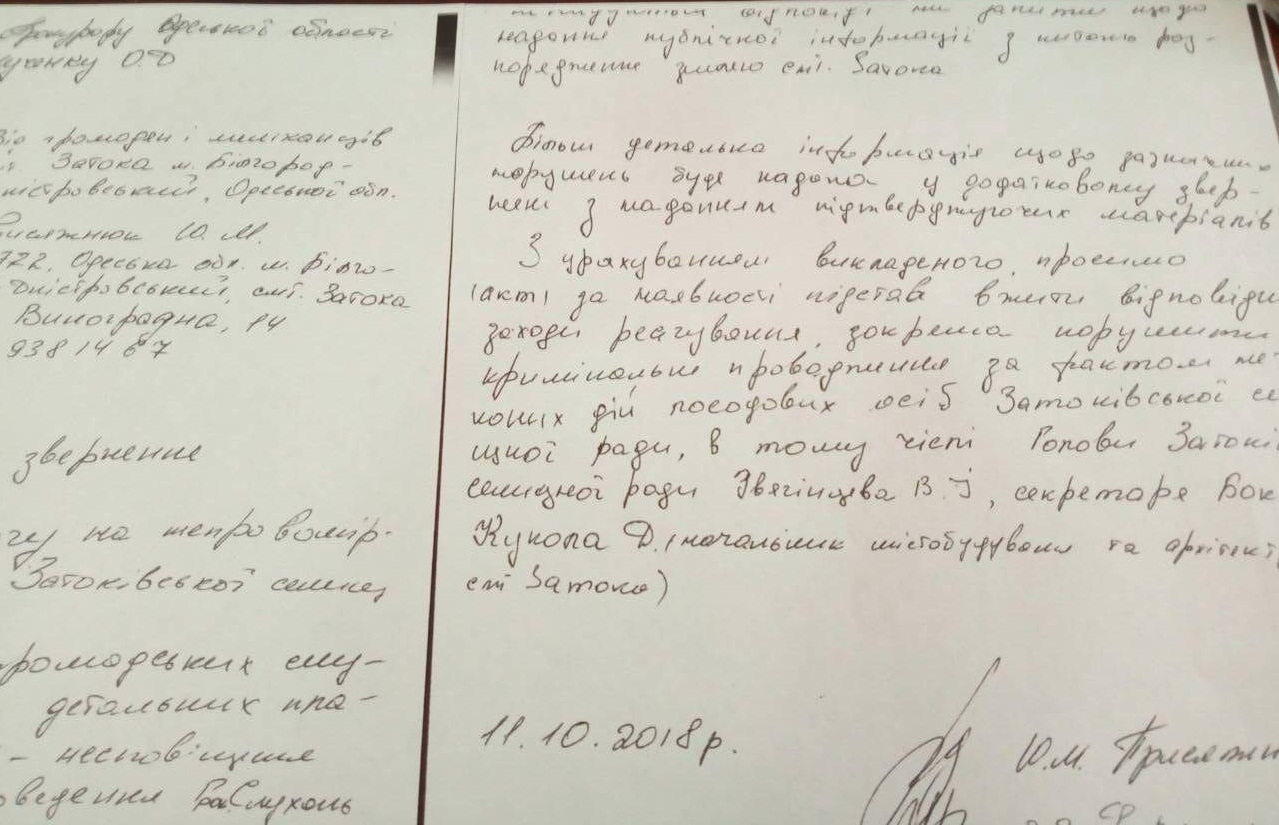 Прокурору Одеської області
О.Д
громадян і мешканців
Затока м. Білгород-
ністровський, Одеської обл.
Ю. М.
722, Одеська обл. м. Білго-
Дністровський, смт. Затока
Виноградна, 14
938 14 67
звернення
на неправомір-
Затоківської селищ
ромадських слу-
детальних пла-
- несповіщення
оведення
відповіді на запити щодо
надання публічної інформації з питань роз-
порядження землею смт. Затока
Більш детальна інформація щодо зазначених
порушень буде надана у додатковому звер-
нені з наданням підтверджуючих матеріалів
З урахуванням викладеного, просимо
за наявності підстав вжити відповідн
заходи реагування, зокрема порушити
кримінальне провадження за фактом не-
коних дій посадових осіб Затоківської се
щної ради, в тому числі Голови Затокі
селищної ради Звягінцева В.І, секретаря Бок
Кукола Д. (начальник містобудуваня та архітект
смт Затока)
11.10.2018 р.
Ю.М. Присяжн